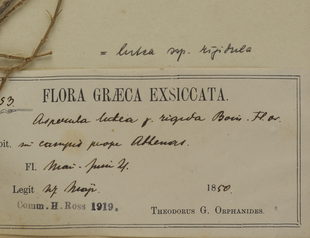 = lutea ssp. rigidula
53
FLORA GRÆCA EXSICCATA.
Asperula lutea γ. rigida Bois. Flor.
bit. in campis prope Athenas.
Fl. Mai - Juni
Legit 1850.
Comm. H. Ross 1919.
THEODORUS G. ORPHANIDES.